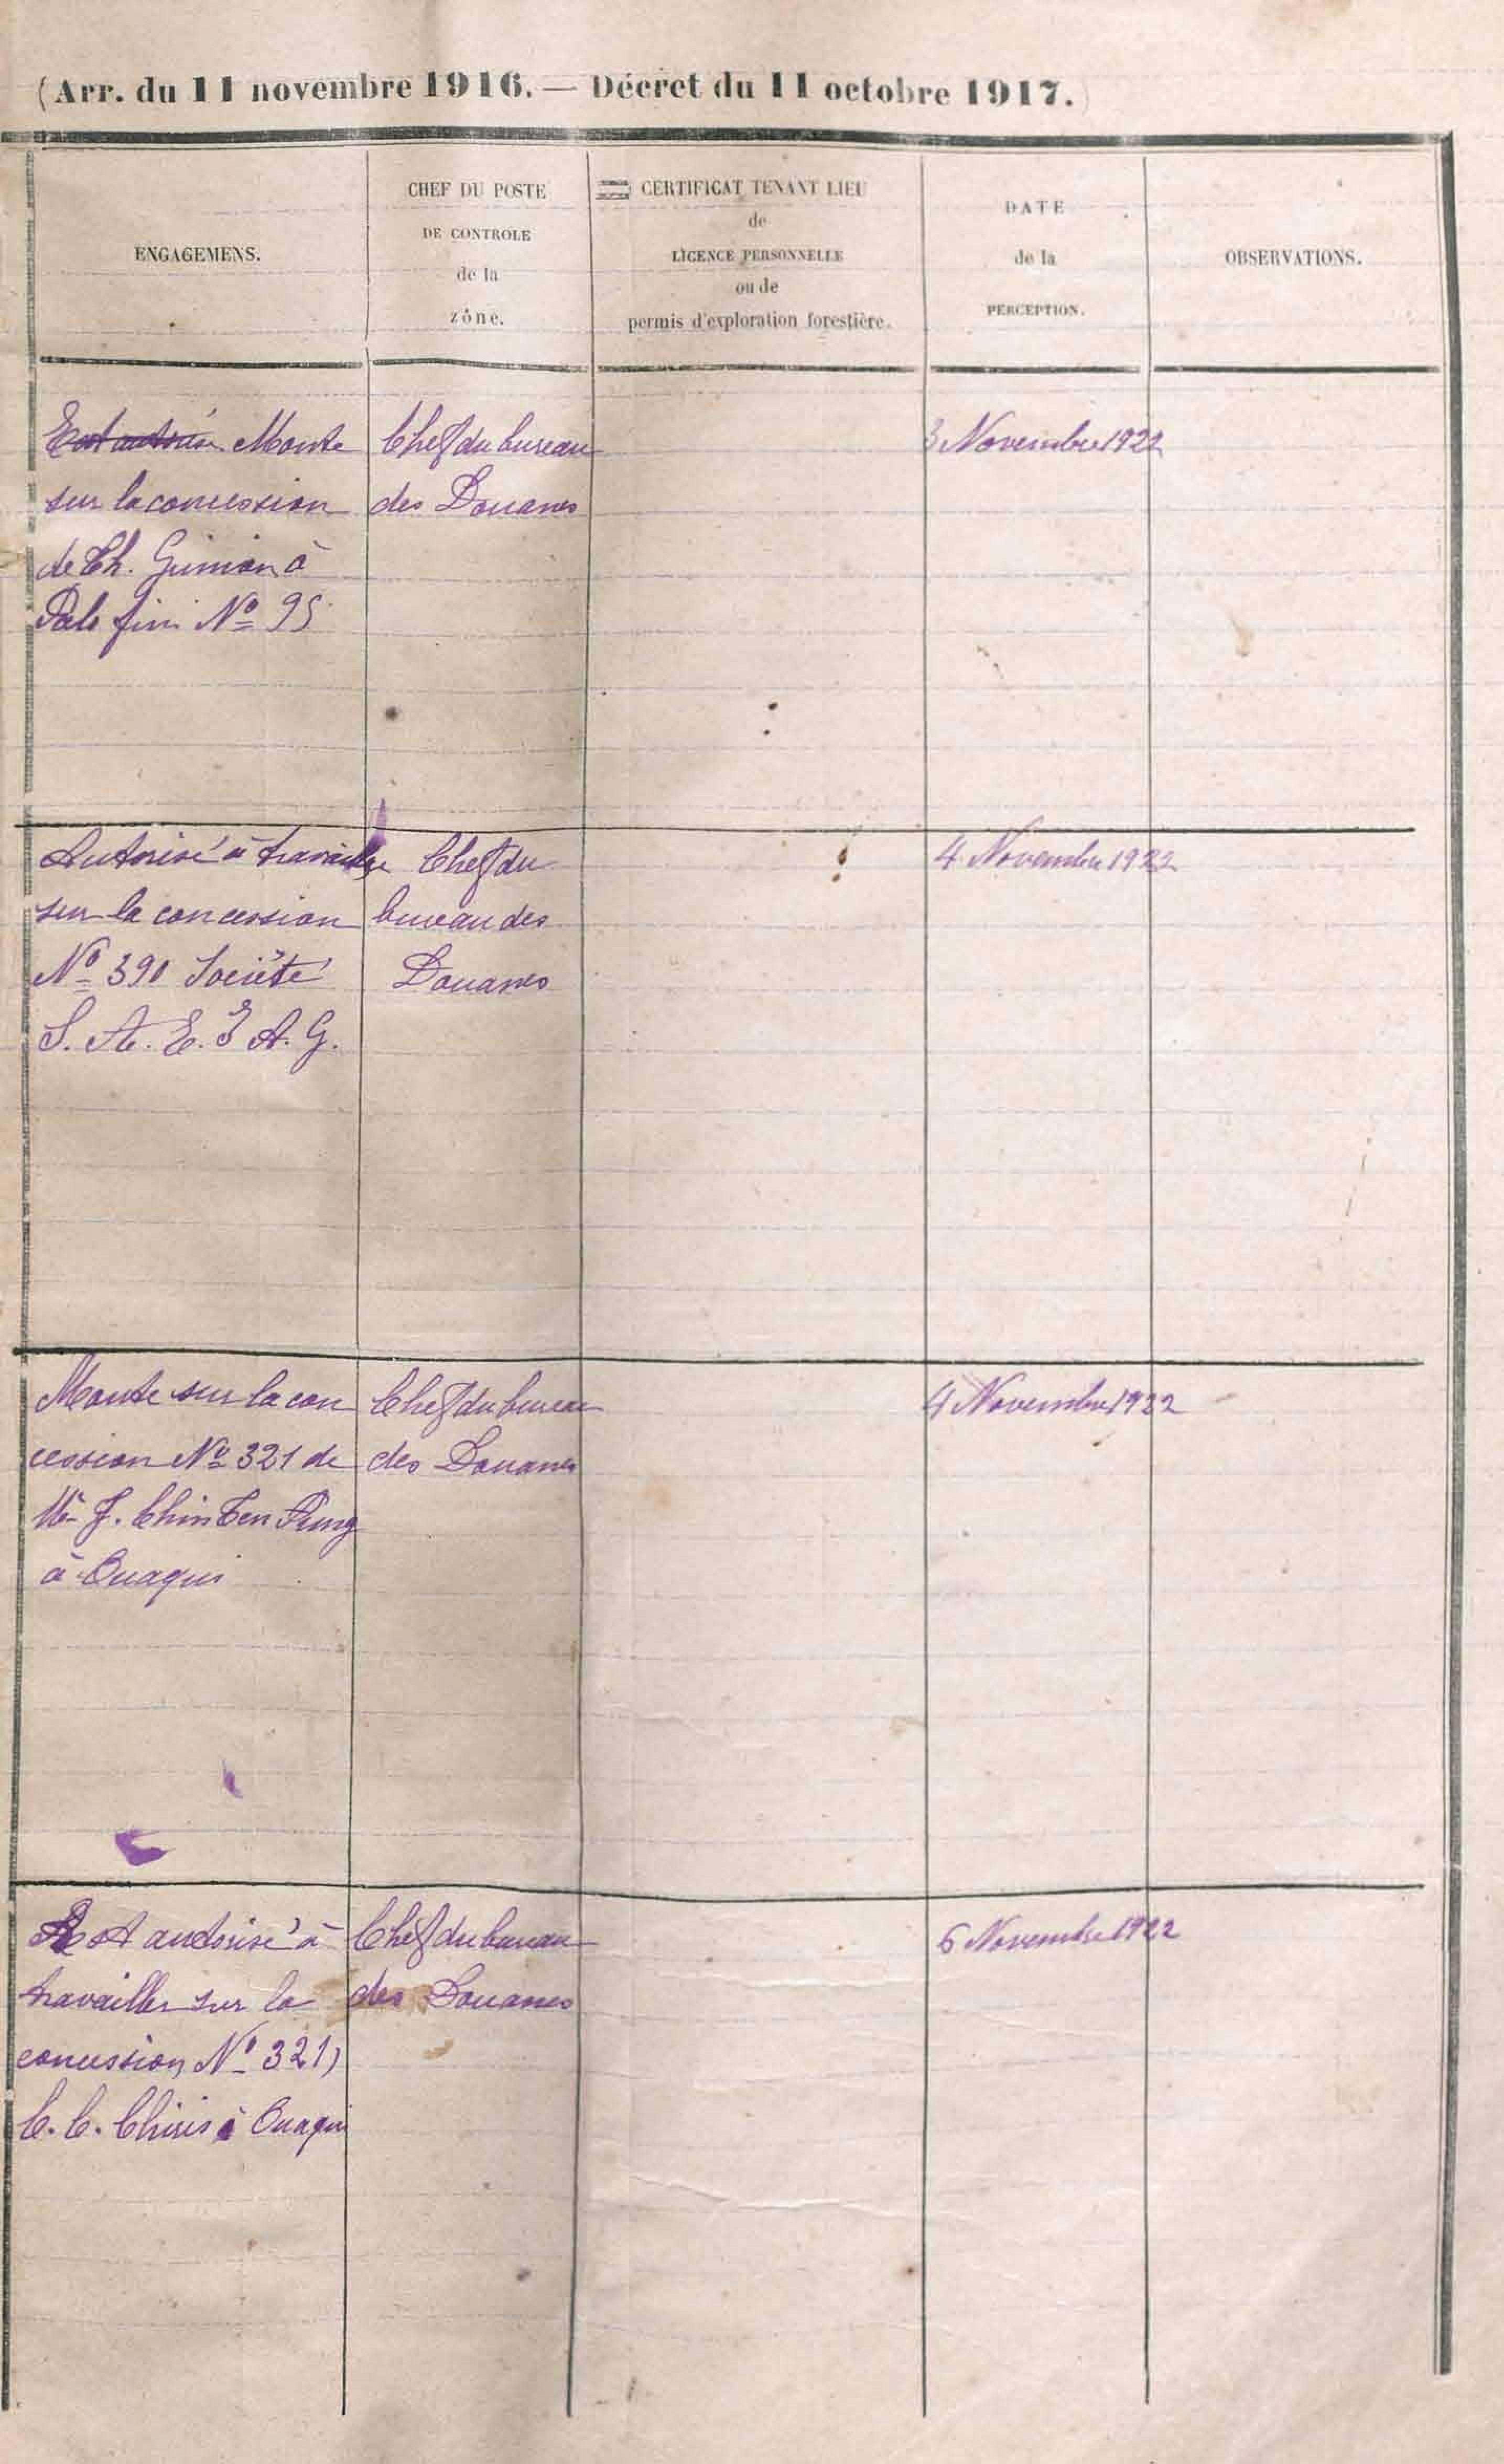 (Arr. du 11 novembre 1916. — Décret du 11 octobre 1917.)
ENGAGEMENS.
CHEF DU POSTE
DE CONTROLE
de la
zône.
CERTIFICAT TENANT LIEU
de
LICENCE PERSONNELLE
ou de
permis d'exploration forestière.
DATE
de la
PERCEPTION.
OBSERVATIONS.
Est autorisé Monte
sur la concession
de Th. Guimian à
fini Nº 95
Chef du bureau
des Douanes
3 Novembre 1922
Autorisé à travailler
sur la concession
Nº 390 Société
S. A. E. A. G.
Chef du
bureau des
Douanes
4 Novembre 1922
Monte sur la con
cession Nº 321 de
Mr J. Chin Ten Fung
à Ouaqui
Chef du bureau
des Douanes
4 Novembre 1922
Est autorisé à
travailler sur la
concession Nº 321
C. C. Chiris à Ouaqui
Chef du bureau
des Douanes
6 Novembre 1922